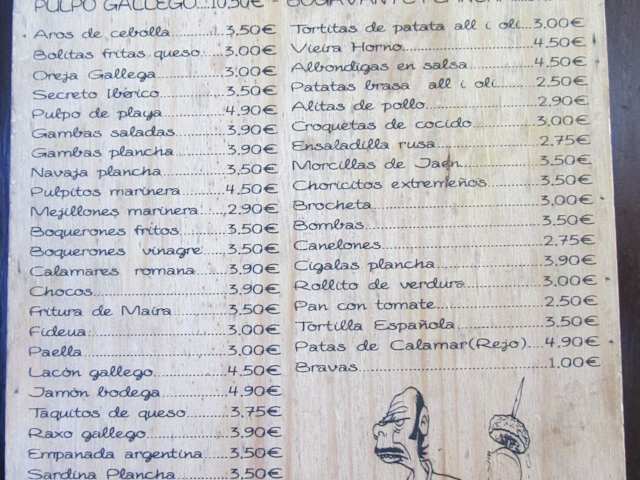 PULPO GALLEGO...10,50€ -
Aros de cebolla..............3,50€
Bolitas fritas queso.......3,00€
Oreja Gallega................3,00€
Secreto Ibérico..............3,50€
Pulpo de playa...............4,90€
Gambas saladas...............3,90€
Gambas plancha...............3,90€
Navaja plancha...............3,50€
Pulpitos marinera..........4,50€
Mejillones marinera......2,90€
Boquerones fritos..........3,50€
Boquerones vinagre.......3,50€
Calamares romana.........3,90€
Chocos...........................3,90€
Fritura de Maira............3,50€
Fideua...........................3,00€
Paella.............................3,00€
Lacón gallego................4,50€
Jamón bodega................4,90€
Taquitos de queso.........3,75€
Raxo gallego..................3,90€
Empanada argentina.....3,50€
Sardina Plancha............3,50€
Tortitas de patata all i oli...3,00€
Vieira Horno....................4,50€
Albondigas en salsa..........4,50€
Patatas brasa all i oli.......2,50€
Alitas de pollo..................2,90€
Croquetas de cocido..........3,00€
Ensaladilla rusa................2,75€
Morcillas de Jaén...............3,50€
Choricitos extremeños......3,50€
Brocheta..........................3,00€
Bombas............................3,50€
Canelones.........................2,75€
Cigalas plancha.................3,90€
Rollito de verdura.............3,00€
Pan con tomate.................2,50€
Tortilla Española..............3,50€
Patas de Calamar(Rejo)...4,90€
Bravas..............................1,00€